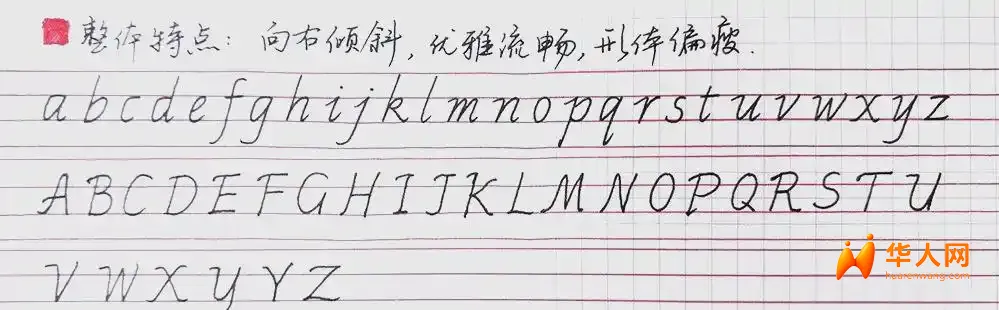 整体特点：向右倾斜，优雅流畅，形体偏瘦.
a b c d e f g h i j k l m n o p q r s t u v w x y z
A B C D E F G H I J K L M N O P Q R S T U
V W X Y Y Z
华人网
huarenwang.com